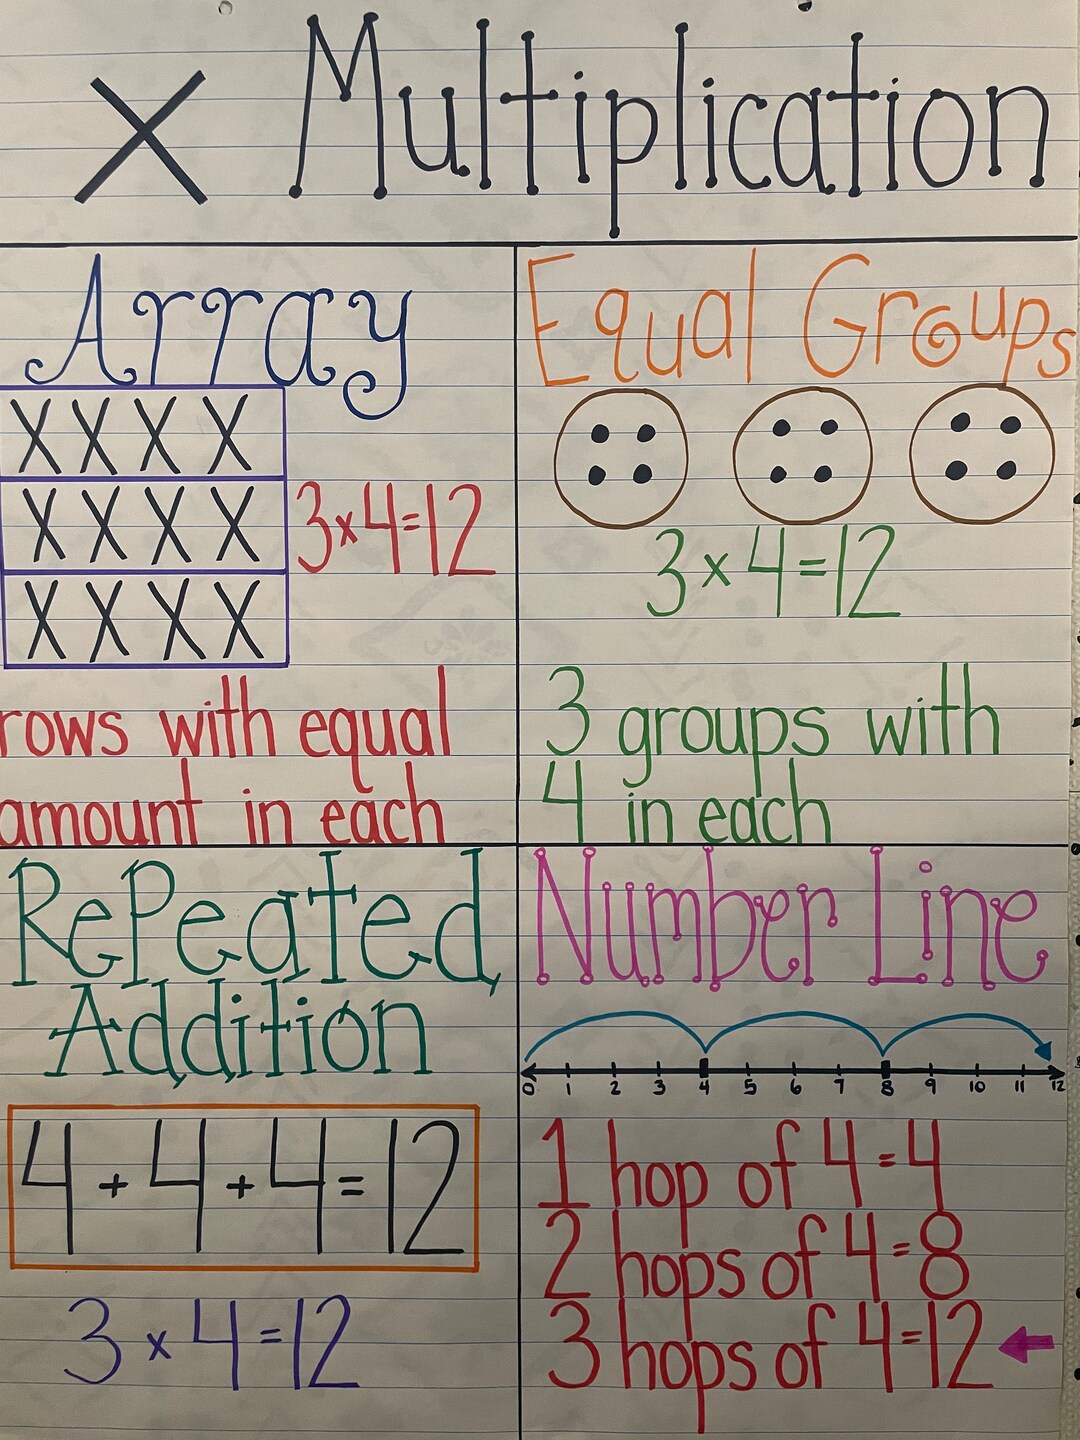 × Multiplication
Array
X X X X
X X X X
X X X X
3×4=12
rows with equal
amount in each
Equal Groups
3×4=12
3 groups with
4 in each
RePeated
Addition
4+4+4=12
3×4=12
Number Line
0 1 2 3 4 5 6 7 8 9 10 11 12
1 hop of 4=4
2 hops of 4=8
3 hops of 4=12